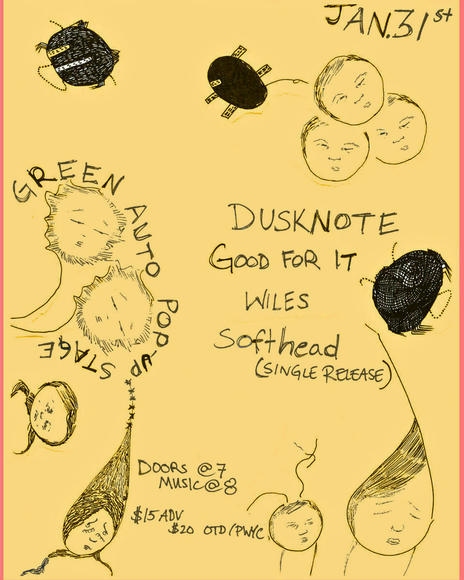 JAN.31st
GREEN AUTO POP-UP STAGE
DUSKNOTE
GOOD FOR IT
WILES
Softhead
(SINGLE RELEASE)
DOORS @7
MUSIC@8
$15 ADV
$20 OTD/PWYC